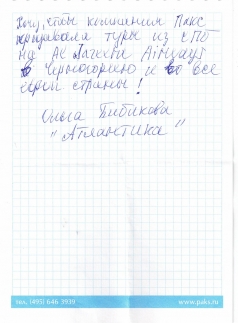 Хочу, чтобы компания Пакс
продавала туры из СПб
на АК Дагестан Airways
в Черногорию и во все
страны!
Ольга Бибикова
"Атлантика"
тел. (495) 646 3939
www.paks.ru